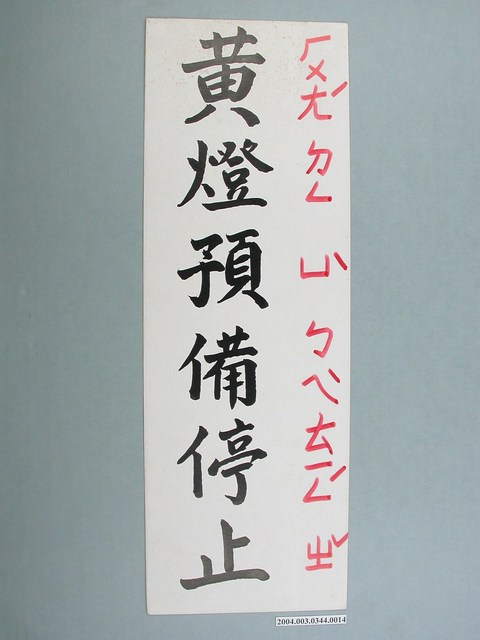 黃燈預備停止
ㄏㄨㄤˊ ㄉㄥ ㄩˋ ㄅㄟˋ ㄊㄧㄥˊ ㄓˇ
2004.003.0344.0014